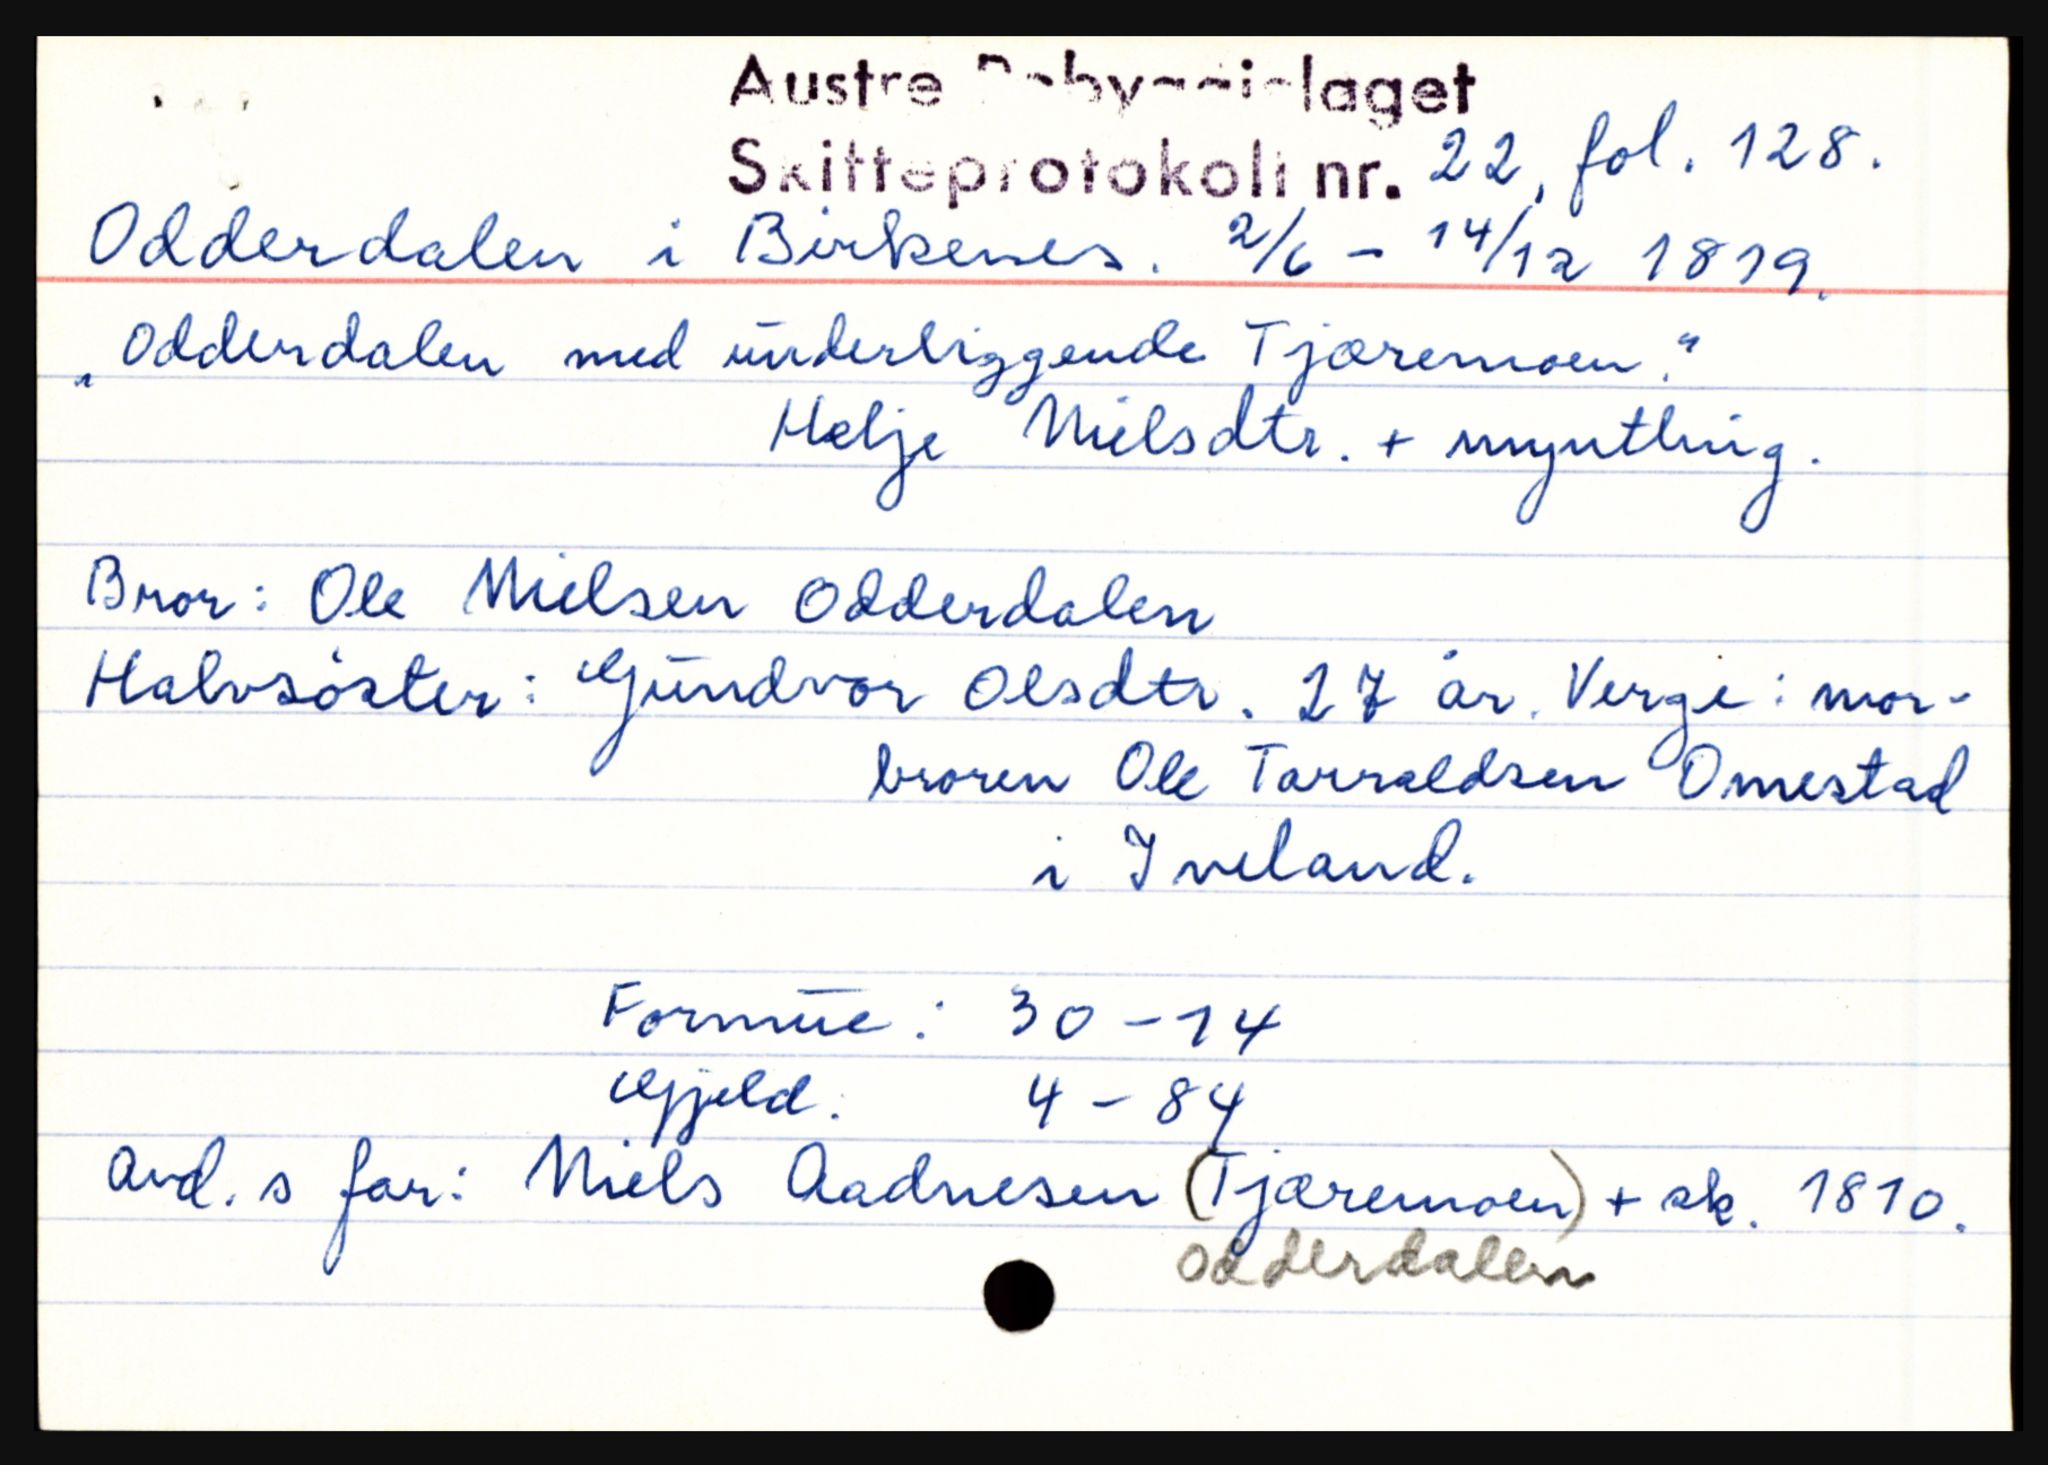 Austre Råbyggjelaget
Skifteprotokoll nr. 22, fol. 128.
Odderdalen i Birkenes. 2/6 - 14/12 1819.
„Odderdalen med underliggende Tjæremoen."
Helje Nielsdtr. + myntling.
Bror: Ole Nielsen Odderdalen
Halvsöster: Gundvor Olsdtr. 27 år. Verge: mor-
broren Ole Tarraldsen Omestad
i Iveland.
Formue: 30-14
Gjeld: 4-84
Avd. s far: Niels Aadnesen (Tjæremoen) + sk. 1810.
Odderdalen